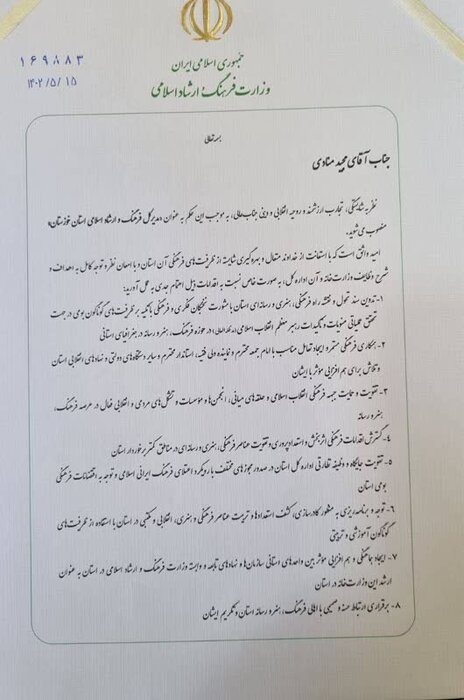 ۱۶۹۸۸۳
۱۴۰۲/۵/۱۵
جمهوری اسلامی ایران
وزارت فرهنگ و ارشاد اسلامی
بسمه تعالی
جناب آقای مجید منادی
نظر به شایستگی، تجارب ارزشمند و روحیه انقلابی و دینی جناب‌عالی، به موجب این حکم به عنوان «مدیرکل فرهنگ و ارشاد اسلامی استان خوزستان»
منصوب می‌شوید.
امید واثق است که با استعانت از خداوند متعال و بهره‌گیری شایسته از ظرفیت‌های فرهنگی آن استان و با امعان نظر و توجه کامل به اهداف و
شرح وظایف وزارت‌خانه و آن اداره کل، به صورت خاص نسبت به اقدامات ذیل اهتمام جدی به عمل آورید:
۱- تدوین سند تحول و نقشه راه فرهنگی، هنری و رسانه‌ای استان با مشورت نخبگان فکری و فرهنگی با تکیه بر ظرفیت‌های گوناگون بومی در جهت
تحقق عملیاتی منویات و تأکیدات رهبر معظم انقلاب اسلامی (مدظله‌العالی) در حوزه فرهنگ، هنر و رسانه در جغرافیای استانی
۲- همکاری فرهنگی مستمر و ایجاد تعامل مناسب با امام جمعه محترم و نماینده ولی فقیه، استاندار محترم و سایر دستگاه‌های دولتی و نهادهای انقلابی استان
و تلاش برای هم‌افزایی مؤثر با ایشان
۳- تقویت و حمایت جبهه فرهنگی انقلاب اسلامی و حلقه‌های میانی، انجمن‌ها و مؤسسات و تشکل‌های مردمی و انقلابی فعال در عرصه فرهنگ،
هنر و رسانه
۴- گسترش اقدامات فرهنگی اثربخش و استعدادپروری و تقویت عناصر فرهنگی، هنری و رسانه‌ای در مناطق کمتر برخوردار استان
۵- تقویت جایگاه و وظیفه نظارتی اداره کل استان در صدور مجوزهای مختلف با رویکرد اعتلای فرهنگ ایرانی اسلامی و توجه به اقتضائات فرهنگی
بومی استان
۶- توجه و برنامه‌ریزی به منظور کادرسازی، کشف استعدادها و تربیت عناصر فرهنگی و هنری، انقلابی و مکتبی در استان با استفاده از ظرفیت‌های
گوناگون آموزشی و تربیتی
۷- ایجاد هماهنگی و هم‌افزایی مؤثر بین واحدهای استانی سازمان‌ها و نهادهای تابعه و وابسته وزارت فرهنگ و ارشاد اسلامی در استان به عنوان
ارشد این وزارت‌خانه در استان
۸- برقراری ارتباط حسنه و صمیمی با اهالی فرهنگ، هنر و رسانه استان و تکریم ایشان